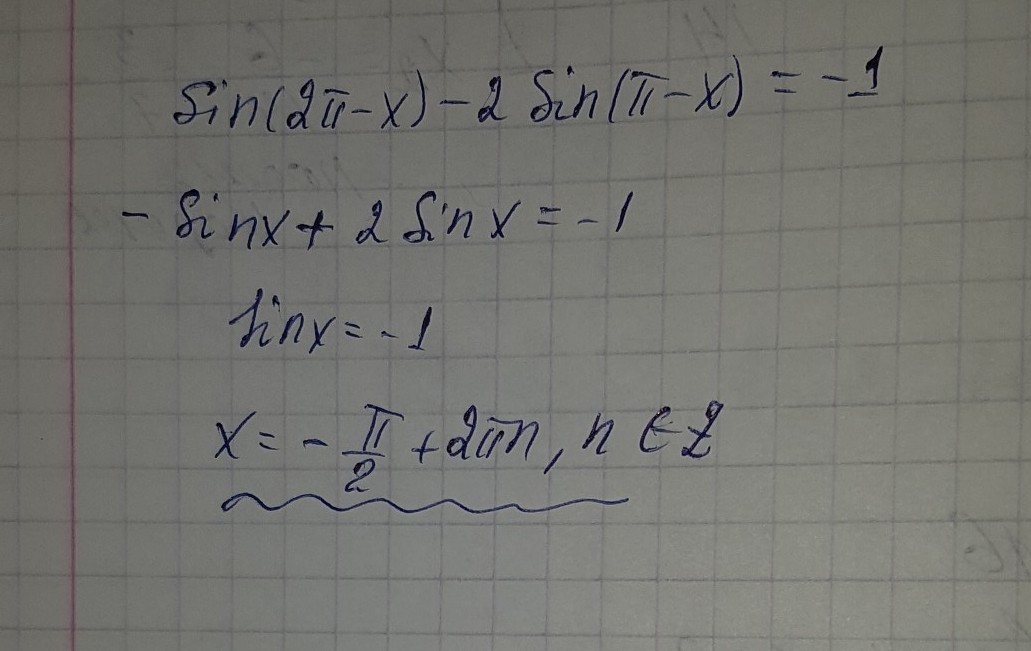 sin(2π-x)-2 sin(π-x)=-1
- sinx+ 2 sin x=-1
sinx=-1
x=-π/2+2πn, n ∈ Z